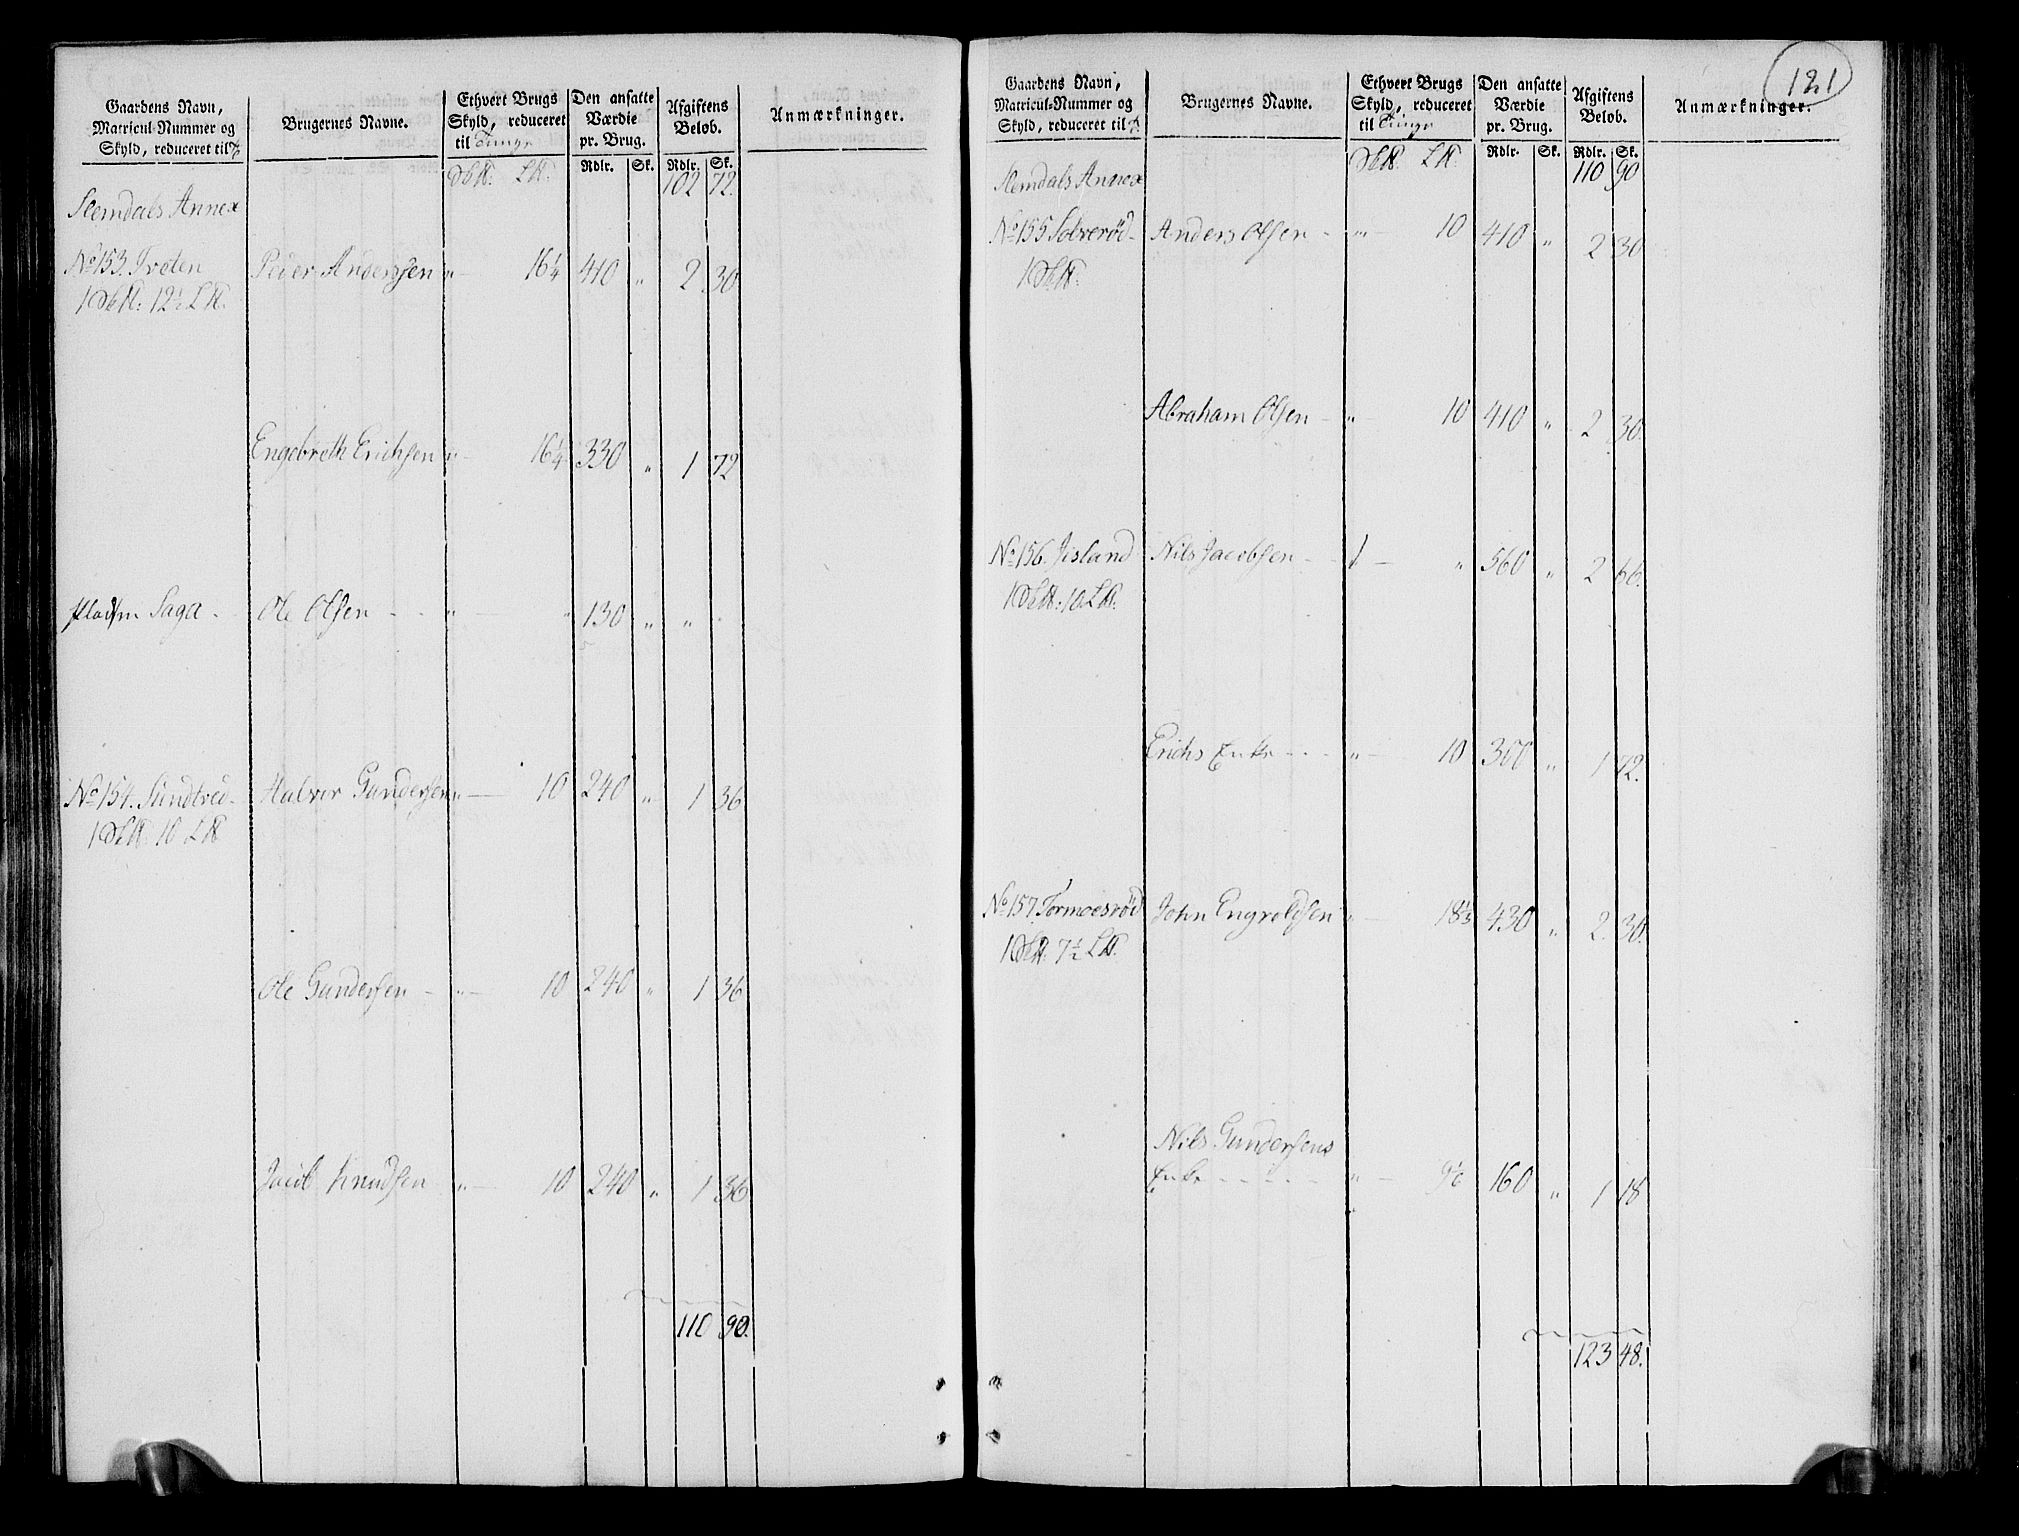 Gaardens Navn,
Matricul-Nummer og
Skyld, reduceret til
Brugernes Navne.
Ethvert Brugs
Skyld, reduceret
til Tunge
Den ansatte
Værdie
pr. Brug.
Afgiftens
Beløb.
Anmærkninger.
Rdlr. Sk. Rdlr. Sk.
102 72.
Slemdals Annex
No 153. Tveten Peder Anderssen " 16¼ 410 " 2 30
1 12½
Engebreth Erichsen " 16¼ 330 " 1 72
Saga Ole Olsen " " 130 " "
No 154. Sundtved Halvor Gundersen " 10 240 " 1 36
1 10
Ole Gundersen " 10 240 " 1 36
Jacob Knudsen " 10 240 " 1 36
110 90.
121
Gaardens Navn,
Matricul-Nummer og
Skyld, reduceret til
Brugernes Navne.
Ethvert Brugs
Skyld, reduceret
til Tunge
Den ansatte
Værdie
pr. Brug.
Afgiftens
Beløb.
Anmærkninger.
Rdlr. Sk. Rdlr. Sk.
110 90
Slemdals Annex
No 155 Solverød Anders Olsen " 10 410 " 2 30
1
Abraham Olsen " 10 410 " 2 30.
No 156. Jisland Nils Jacobsen 1 " 560 " 2 66.
1 10
Erichs Enke " 10 300 " 1 72.
No 157 Tormoesrød John Engvoldsen " 18⅓ 430 " 2 30.
1 7½
Nils Gundersens
Enke " 9⅙ 160 " 1 18
123 48.